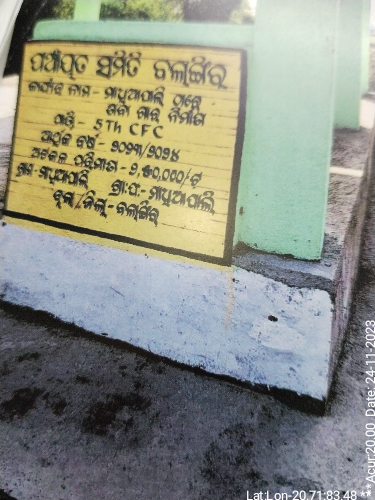 ପଞ୍ଚାୟତ ସମିତି ବଲାଙ୍ଗିର
କାର୍ଯ୍ୟର ନାମ - ମାଧିଆପାଲି ଠାରେ
ଗଭା ଗାଡ଼ ନିର୍ମାଣ
ପାଣ୍ଠି - 5Th CFC
ଆର୍ଥିକ ବର୍ଷ - ୨୦୨୩/୨୦୨୪
ଅଟକଳ ପରିମାଣ - ୨,୫୦,୦୦୦/ଟ
ଗ୍ରାମ - ମାଧିଆପାଲି ଗ୍ରା:ପ:- ମାଧିଆପାଲି
ବ୍ଲକ / ଜିଲ୍ଲା - ବଲାଙ୍ଗିର
Lat:Lon-20.71:83.48 ** Acur:20.00 Date, 24-11-2023